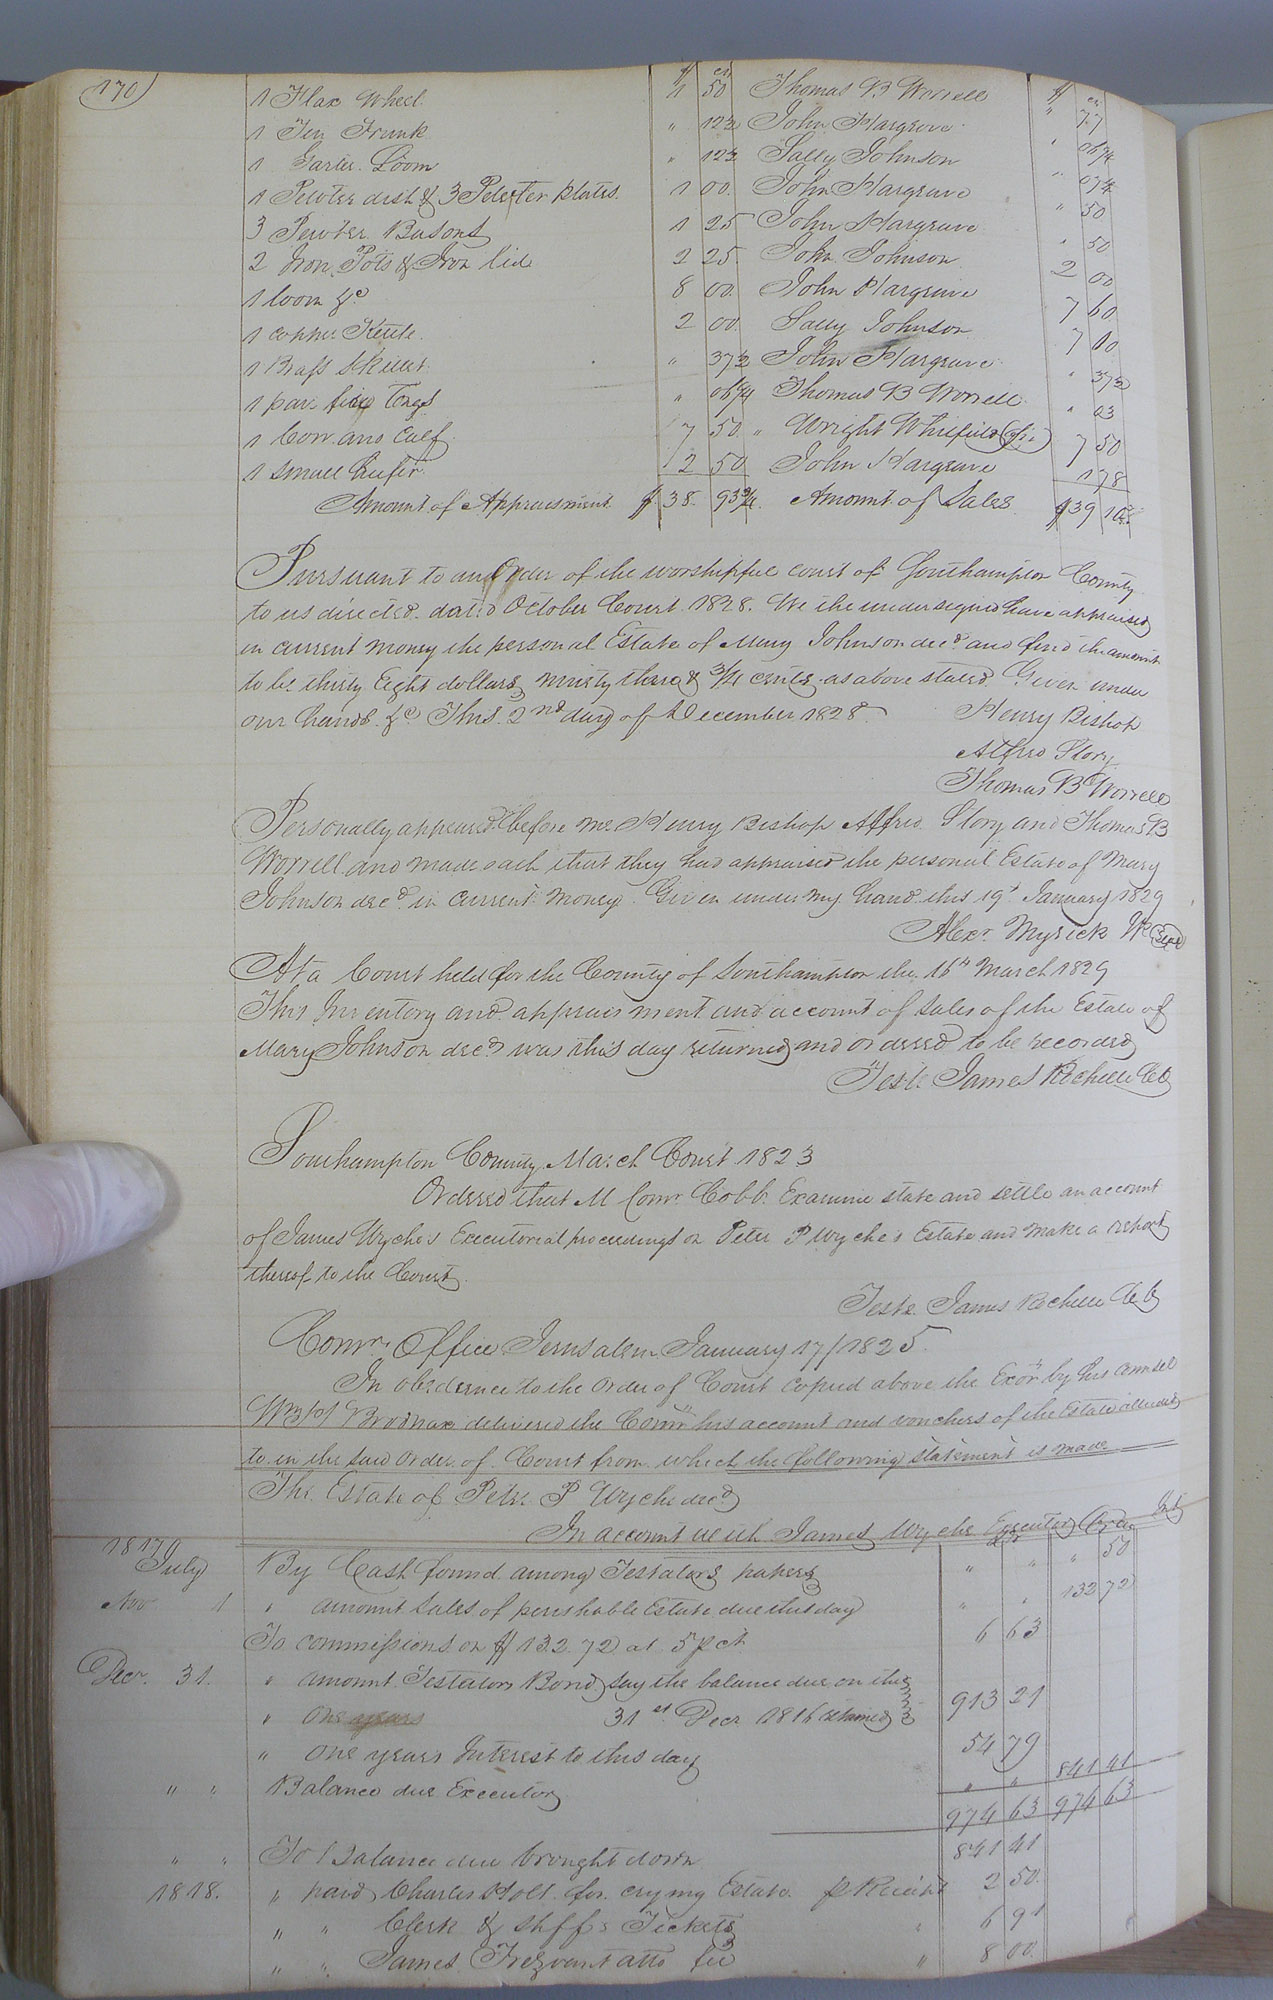 170
$ cts $ cts
1 Flax Wheel 1 50 Thomas B Worrell " 77
1 Tin Trunk " 12½ John Hargrave " 06¼
1 Garter Loom " 12½ Sally Johnson " 07½
1 Pewter dish & 3 Pewter plates 1 00 John Hargrave " 50
3 Pewter Basons 1 25 John Hargrave " 50
2 Iron Pots & Iron lid 2 25 John Johnson 2 00
1 loom &c 8 00 John Hargrave 7 60
1 copper Kettle 2 00 Sally Johnson 7 00
1 Brass Skillet " 37½ John Hargrave " 37½
1 pair fire Tongs " 06¼ Thomas B Worrell " 03
1 Cow and Calf 7 50 " Wright Whifield 7 50
1 small heifer 2 50 John Hargrave 1 78
Amount of Appraisment $ 38. 93¾. Amount of Sales $39 10
Pursuant to an Order of the worshipful court of Southampton County
to us directed. dated October Court 1828. We the undersigned have appraised
in current money the personal Estate of Mary Johnson decd and find the amount
to be thirty Eight dollars ninety three & ¾ cents as above stated. Given under
our hands &c This 2nd day of December 1828
Henry Bishop
Alfred Story
Thomas B Worrell
Personally appeared before me Henry Bishop Alfred Story and Thomas B
Worrell and made oath that they had appraised the personal Estate of Mary
Johnson decd in current money. Given under my hand this 19t January 1829
Alexr Myrick
At a Court held for the County of Southampton the 16th March 1829
This Inventory and appraisment and account of Sales of the Estate of
Mary Johnson decd was this day returned and ordered to be recorded
Teste James Rochelle CC
Southampton County March Court 1823
Ordered that M Comr Cobb Examine state and settle an account
of James Wyche's Executorial proceedings on Peter P Wyche's Estate and make a report
thereof to the Court
Teste James Rochelle CC
Comrs Office Jerusalem January 17/1825
In obedience to the Order of Court copied above the Exor by his counsel
Brodnax delivered the Comr his account and vouchers of the Estate alluded
to in the said order of Court from which the following statement is made
The Estate of Peter P Wyche decd
In account with James Wyche Executor
Dr Cr
1817
July By Cash found among Testators papers " " " 50
Nov 1 " amount Sales of perishable Estate due this day " " 132 72
To commissions on $132 72 at 5 p ct 6 63
Decr 31. " amount Testators Bond say the balance due on the
" one years 31st Decr 1816 retained 913 21
" one years Interest to this day 54 79
" " Balance due Executor " " 841 41
974 63 974 63
" " To Balance due brought down 841 41
1818. " paid Charles Holt for crying Estate p Receipt 2 50
" " Clerk & Shffs Tickets " 6 91
" " James Trezvant atto fee " 8 00